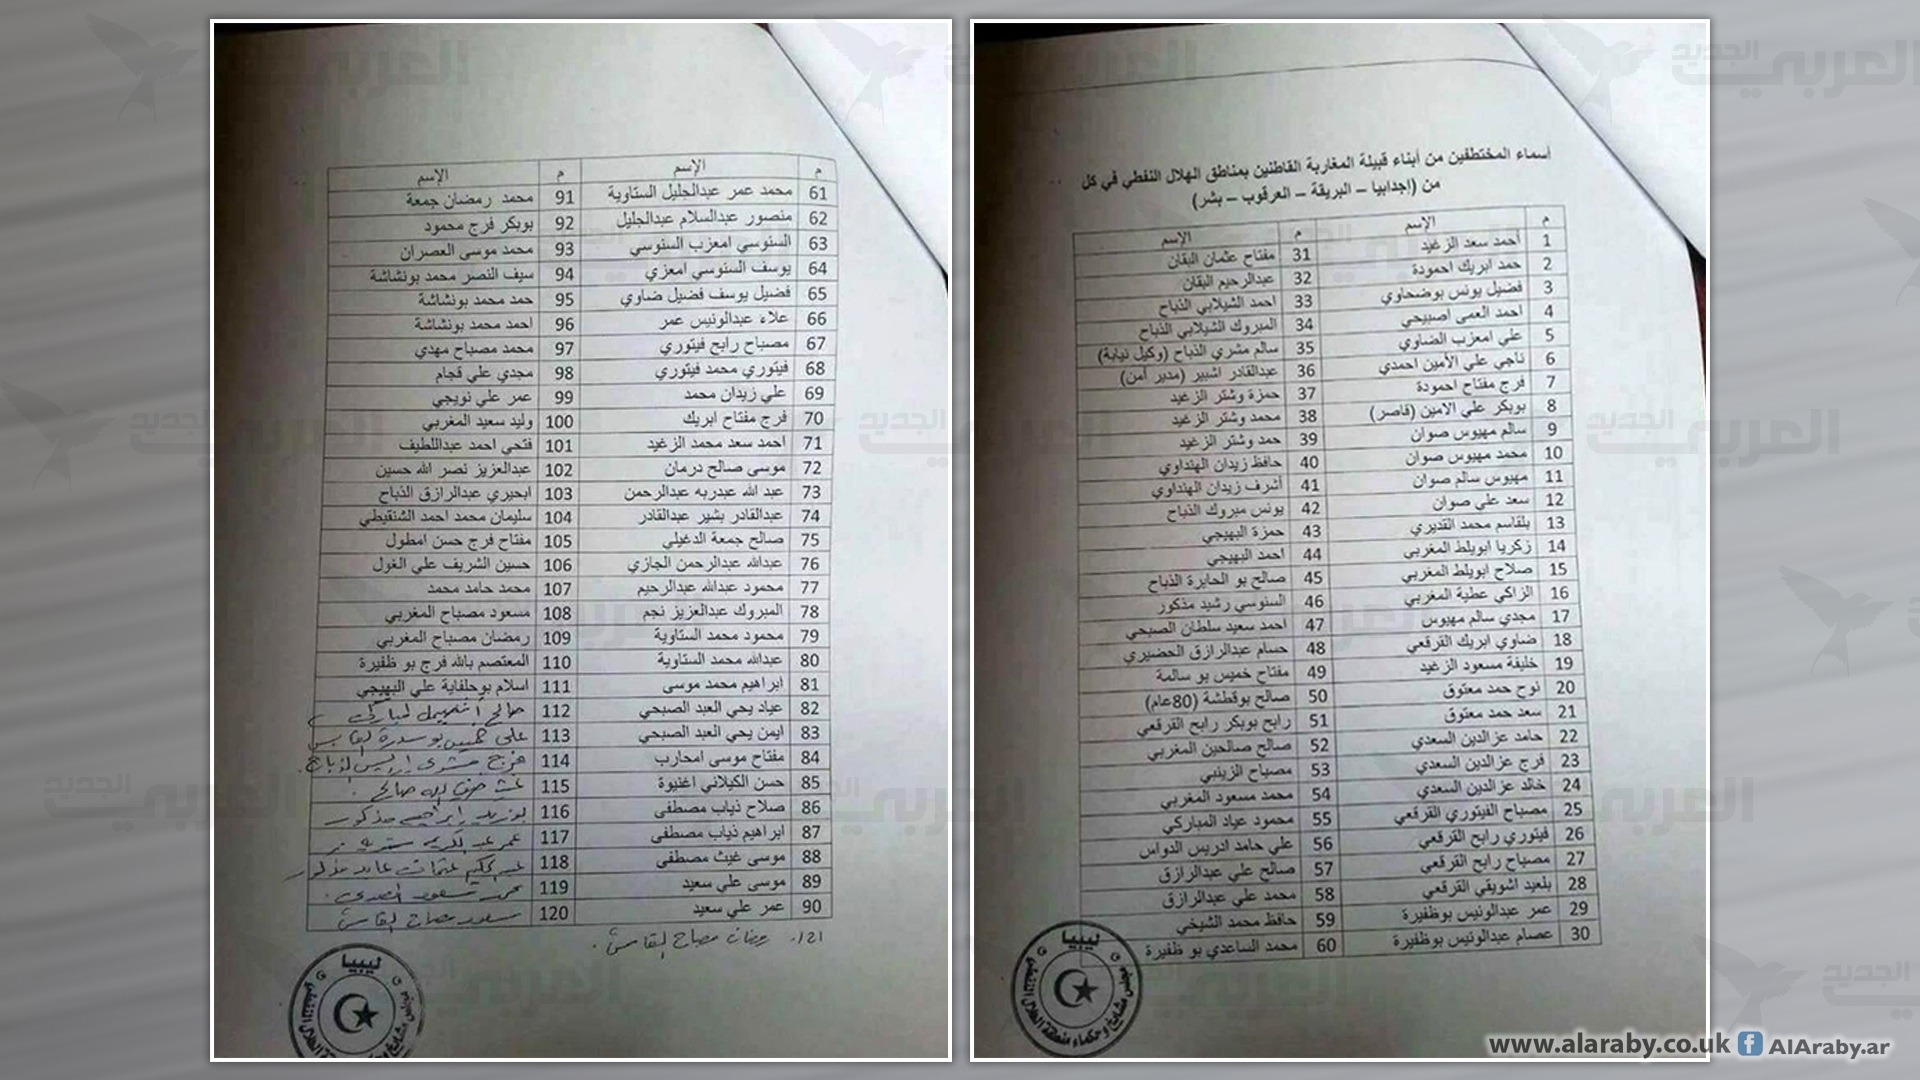 أسماء المختطفين من أبناء قبيلة المغاربة القاطنين بمناطق الهلال النفطي في كل
من (إجدابيا – البريقة – العرقوب – بشر)
م الإسم م الإسم
1 أحمد سعد الزغيد 31 مفتاح عثمان البقان
2 حمد ابريك احمودة 32 عبدالرحيم البقان
3 فضيل يونس بوضحاوي 33 احمد الشيلابي الذباح
4 احمد العمى اصبيحي 34 المبروك الشيلابي الذباح
5 علي امعزب الضاوي 35 سالم مشري الذباح (وكيل نيابة)
6 ناجي علي الأمين احمدي 36 عبدالقادر اشبير (مدير أمن)
7 فرج مفتاح احمودة 37 حمزة وشتر الزغيد
8 بوبكر علي الامين (قاصر) 38 محمد وشتر الزغيد
9 سالم مهيوس صوان 39 حمد وشتر الزغيد
10 محمد مهيوس صوان 40 حافظ زيدان الهنداوي
11 مهيوس سالم صوان 41 أشرف زيدان الهنداوي
12 سعد علي صوان 42 يونس مبروك الذباح
13 بلقاسم محمد القديري 43 حمزة البهيجي
14 زكريا ابويلط المغربي 44 احمد البهيجي
15 صلاح ابويلط المغربي 45 صالح بو الحايرة الذباح
16 الزاكي عطية المغربي 46 السنوسي رشيد مذكور
17 مجدي سالم مهيوس 47 احمد سعيد سلطان الصبحي
18 ضاوي ابريك القرقعي 48 حسام عبدالرازق الحضيري
19 خليفة مسعود الزغيد 49 مفتاح خميس بو سالمة
20 نوح حمد معتوق 50 صالح بوقطشة (80عام)
21 سعد حمد معتوق 51 رابح بوبكر رابح القرقعي
22 حامد عزالدين السعدي 52 صالح صالحين المغربي
23 فرج عزالدين السعدي 53 مصباح الزيني
24 خالد عزالدين السعدي 54 محمد مسعود المغربي
25 مصباح الفيتوري القرقعي 55 محمود عياد المباركي
26 فيتوري رابح القرقعي 56 علي حامد ادريس الدواس
27 مصباح رابح القرقعي 57 صالح علي عبدالرازق
28 بلعيد اشويقي القرقعي 58 محمد علي عبدالرازق
29 عمر عبدالونيس بوظفيرة 59 حافظ محمد الشيخي
30 عصام عبدالونيس بوظفيرة 60 محمد الساعدي بو ظفيرة
ليبيا
مجلس مشايخ وحكماء منطقة الهلال النفطي
م الإسم م الإسم
61 محمد عمر عبدالجليل الستاوية 91 محمد رمضان جمعة
62 منصور عبدالسلام عبدالجليل 92 بوبكر فرج محمود
63 السنوسي امعزب السنوسي 93 محمد موسى العصران
64 يوسف السنوسي امعزي 94 سيف النصر محمد بونشاشة
65 فضيل يوسف فضيل ضاوي 95 حمد محمد بونشاشة
66 علاء عبدالونيس عمر 96 احمد محمد بونشاشة
67 مصباح رابح فيتوري 97 محمد مصباح مهدي
68 فيتوري محمد فيتوري 98 مجدي علي قجام
69 علي زيدان محمد 99 عمر علي نويجي
70 فرج مفتاح ابريك 100 وليد سعيد المغربي
71 احمد سعد محمد الزغيد 101 فتحي احمد عبداللطيف
72 موسى صالح درمان 102 عبدالعزيز نصر الله حسين
73 عبد الله عبدربه عبدالرحمن 103 ابحيري عبدالرازق الذباح
74 عبدالقادر بشير عبدالقادر 104 سليمان محمد احمد الشنقيطي
75 صالح جمعة الدغيلي 105 مفتاح فرج حسن امطول
76 عبدالله عبدالرحمن الجازي 106 حسين الشريف علي الغول
77 محمود عبدالله عبدالرحيم 107 محمد حامد محمد
78 المبروك عبدالعزيز نجم 108 مسعود مصباح المغربي
79 محمود محمد الستاوية 109 رمضان مصباح المغربي
80 عبدالله محمد الستاوية 110 المعتصم بالله فرج بو ظفيرة
81 ابراهيم محمد موسى 111 اسلام بوحلفاية علي البهيجي
82 عياد يحي العبد الصبحي 112 صالح
83 ايمن يحي العبد الصبحي 113 علي
84 مفتاح موسى امحارب 114 فرج
85 حسن الكيلاني اغنيوة 115 صالح
86 صلاح ذياب مصطفى 116 ابراهيم مذكور
87 ابراهيم ذياب مصطفى 117 عمر عبدالكريم
88 موسى غيث مصطفى 118 عبدالحكيم عثمان مذكور
89 موسى علي سعيد 119 محمد مسعود
90 عمر علي سعيد 120 مسعود مصباح
121. رمضان مصباح
ليبيا
مجلس مشايخ وحكماء الهلال النفطي
العربي الجديد
www.alaraby.co.uk AlAraby.ar